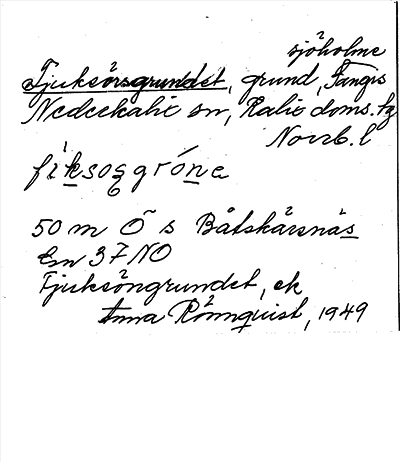 sjöholme
Fjuksörsgrundet, grund, Fångs
Nederkalix sn, Kalix doms. tg
Norrb. l
50 m Ö s Båtskärsnäs
En 37 NO
Fjuksöngrundet, ek
Anna Rönnquist, 1949